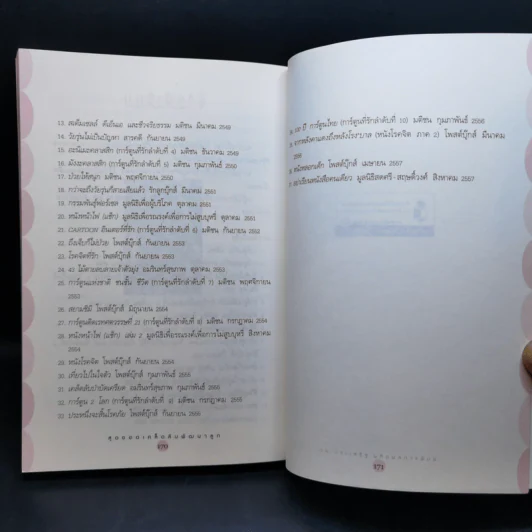 13. สเต็มเซลล์ ดีเอ็นเอ และชีวจริยธรรม มติชน มีนาคม 2549
14. วัยรุ่นไม่เป็นปัญหา สารคดี กันยายน 2549
15. (การ์ตูนที่รักลำดับที่ 4) มติชน ธันวาคม 2549
16. มังงะคลาสสิก (การ์ตูนที่รักลำดับที่ 5) มติชน กุมภาพันธ์ 2550
17. ป่วยให้สนุก มติชน พฤศจิกายน 2550
18. กว่าจะถึงวัยรุ่นก็สายเสียแล้ว รักลูกบุ๊กส์ มีนาคม 2551
19. กรรมพันธุ์ฟอร์เซล มูลนิธิเพื่อผู้บริโภค ตุลาคม 2551
20. หนังหน้าไฟ (แซ็ก) มูลนิธิเพื่อรณรงค์เพื่อการไม่สูบบุหรี่ ตุลาคม 2551
21. CARTOON อินเตอร์ที่รัก (การ์ตูนที่รักลำดับที่ 6) มติชน กันยายน 2552
22. ถึงเจ็บก็ไม่ป่วย โพสต์บุ๊กส์ กันยายน 2552
23. โรคจิตที่รัก โพสต์บุ๊กส์ กันยายน 2553
24. อมรินทร์สุขภาพ ตุลาคม 2553
25. การ์ตูนแห่งชาติ ชนชั้น ชีวิต (การ์ตูนที่รักลำดับที่ 7) มติชน พฤศจิกายน
2553
26. โพสต์บุ๊กส์ มิถุนายน 2554
27. (การ์ตูนที่รักลำดับที่ 8) มติชน กรกฎาคม 2554
28. หนังหน้าไฟ (แซ็ก) เล่ม 2 มูลนิธิเพื่อรณรงค์เพื่อการไม่สูบบุหรี่ สิงหาคม
2554
29. หนังโรคจิต โพสต์บุ๊กส์ กันยายน 2554
30. เที่ยวไปในใจตัว โพสต์บุ๊กส์ กุมภาพันธ์ 2555
31. เคล็ดลับบำบัดเครียด อมรินทร์สุขภาพ กุมภาพันธ์ 2555
32. การ์ตูน 2 โลก (การ์ตูนที่รักลำดับที่ 9) มติชน กรกฎาคม 2555
33. ประหนึ่งจะสิ้นโรคภัย โพสต์บุ๊กส์ กันยายน 2555
170
ปี การ์ตูนไทย (การ์ตูนที่รักลำดับที่ 10) มติชน กุมภาพันธ์ 2556
(หนังโรคจิต ภาค 2) โพสต์บุ๊กส์ มีนาคม
2556
โพสต์บุ๊กส์ เมษายน 2557
มูลนิธิสดศรี-สฤษดิ์วงศ์ สิงหาคม 2557
171